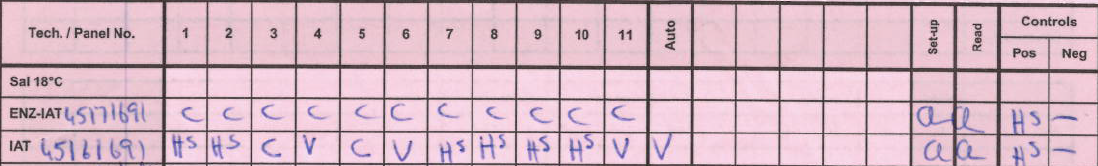 Tech. / Panel No. 1 2 3 4 5 6 7 8 9 10 11 Auto Set-up Read Controls
Pos Neg
Sal 18°C
ENZ-IAT 45171691 C C C C C C C C C C C a a HS —
IAT 45161691 HS HS C V C V HS HS HS HS V V a a HS —